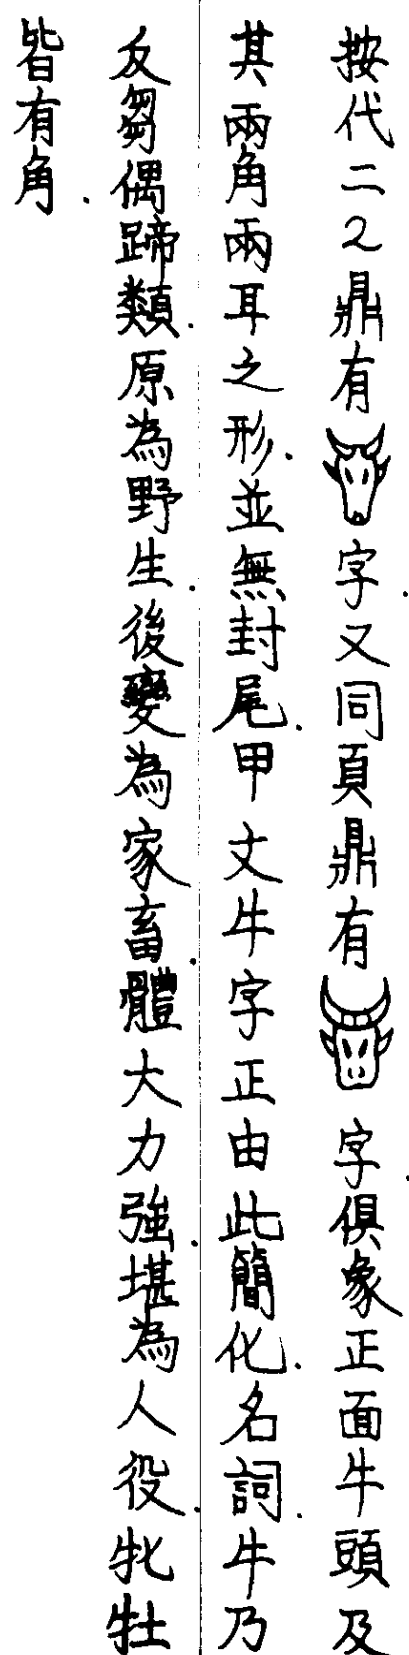 按代二2鼎有字.又同頁鼎有字.俱象正面牛頭及
其兩角兩耳之形.並無封尾.甲文牛字正由此簡化.名詞.牛乃
反芻偶蹄類.原為野生.後變為家畜.體大力強.堪為人役.牝牡
皆有角.